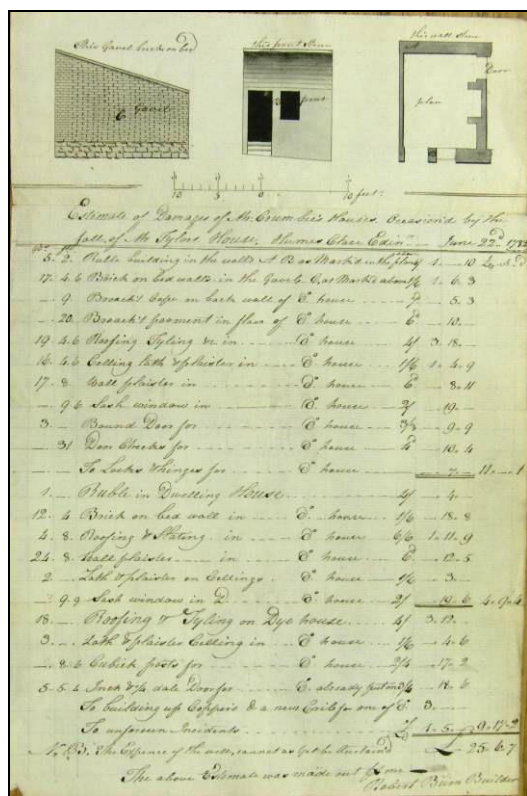 This Gavel brick on bed
this front Stone
this wall Stone
C Gavel
B front
plan
Door
10 5 0 10 feet
Estimate of Damages of Mr. Crumbie's Houses, Occasion'd by the
fall of Mr. Tylors House, Humes Close Edinr. June 22d 1782
5. 2. Ruble building in the walls A B as Mark'd in the plan 4/ 1 - 10
17. 4.6 Brick on bed walls in the Gavel C, as Mark'd above 1/6 1. 6. 3
- 9. Broach'd Cape on back wall of Do. house 7d - 5. 3
- 20. Broach'd pavment in floor of Do. house 6d - 10. -
19 4.6 Roofing Tyling &c in Do. house 4/ 3. 18. -
16. 4.6 Ceiling Lath & plaister in Do. house 1/6 1. 4. 9
17. 8. Wall plaister in Do. house 6d - 8. 11
- 9 6 Sash window in Do. house 2/ - 19. -
3. Bound Door for Do. house 3/3 - 9. 9
- 31 Door Cheeks for Do. house 4d - 10. 4
To Locks & hinges for Do. house - 7. - 11. - 1
1. Ruble in Dwelling House 4/ - 4. -
12. 4 Brick on bed wall in Do. house 1/6 - 18. 8
4. 8. Roofing & Slating in Do. house 6/6 1. 11. 9
24. 8. Wall plaister in Do. house 6d - 12. 5
2. Lath & plaister on Ceilings Do. house 1/6 - 3. -
- 9 9 Sash window in D. Do. house 2/ - 19. 6 4. 9. 4
18. Roofing & Tyling on Dye house 4/ 3. 12.
3. Lath & plaister Ceiling in Do. house 1/6 - 4. 6
- 8.6 Cubick feets for Do. house 2/ - 17. 2
5. 5.4 Inch & 1/4 dale Door for Do. already put on 3/6 - 18. 6
To building up Coppers & a new for one of Do. 3.
To unforseen Incidents 1. 5. - 9. 17. 2
N.B. The Expence of the well, cannot as yet be 25. 6. 7
The above Estimate was made out by me
Robert Burn Builder